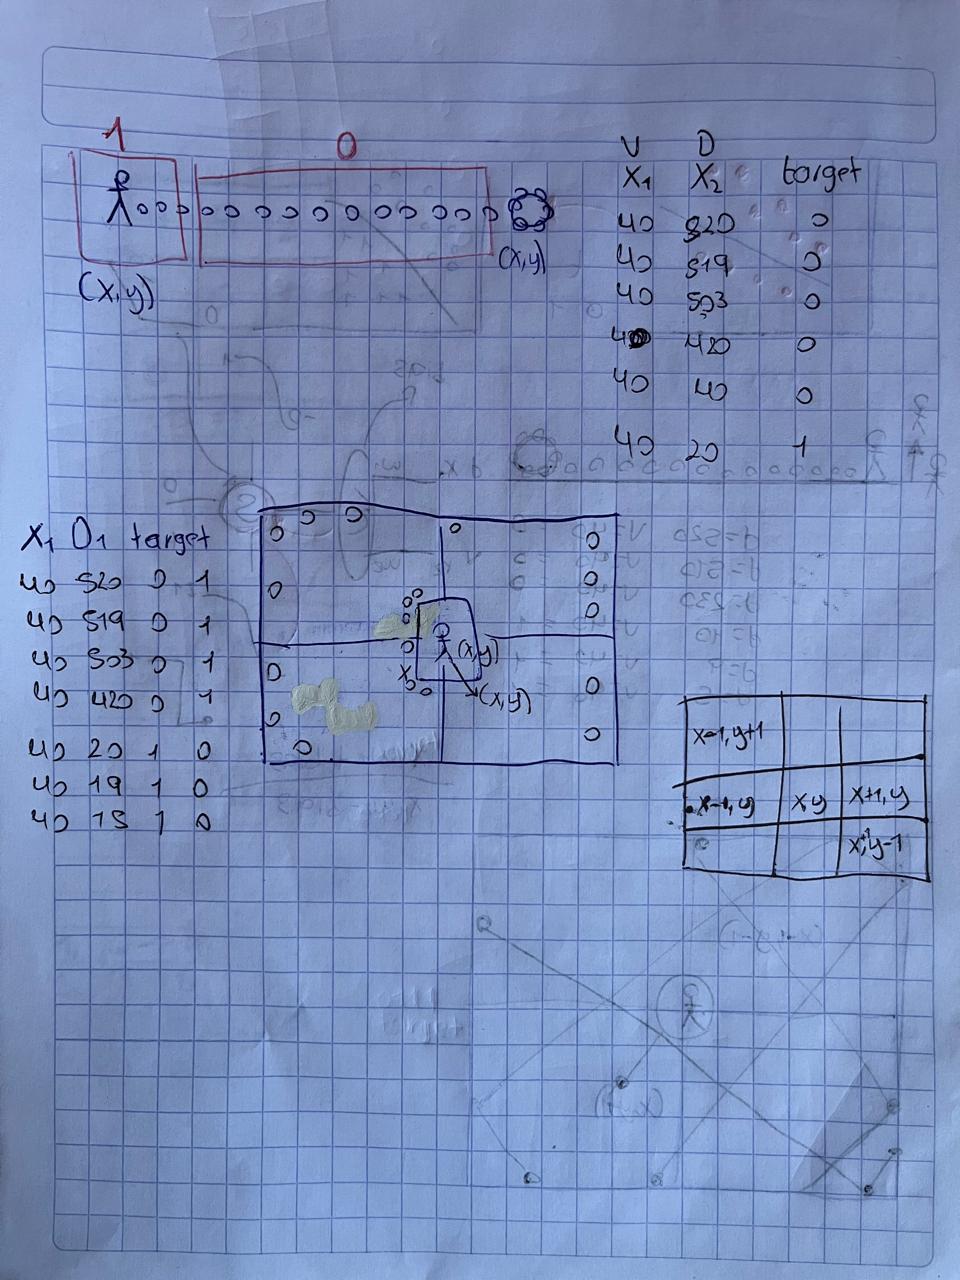 1
0
(x,y)
(x,y)
V D
X1 X2 target
40 520 0
40 519 0
40 503 0
40 420 0
40 40 0
40 20 1
X1 D1 target
40 520 0 1
40 519 0 1
40 503 0 1
40 420 0 1
40 20 1 0
40 19 1 0
40 15 1 0
(x,y)
x
(x,y)
x-1,y+1
x-1,y xy x+1,y
x+1,y-1